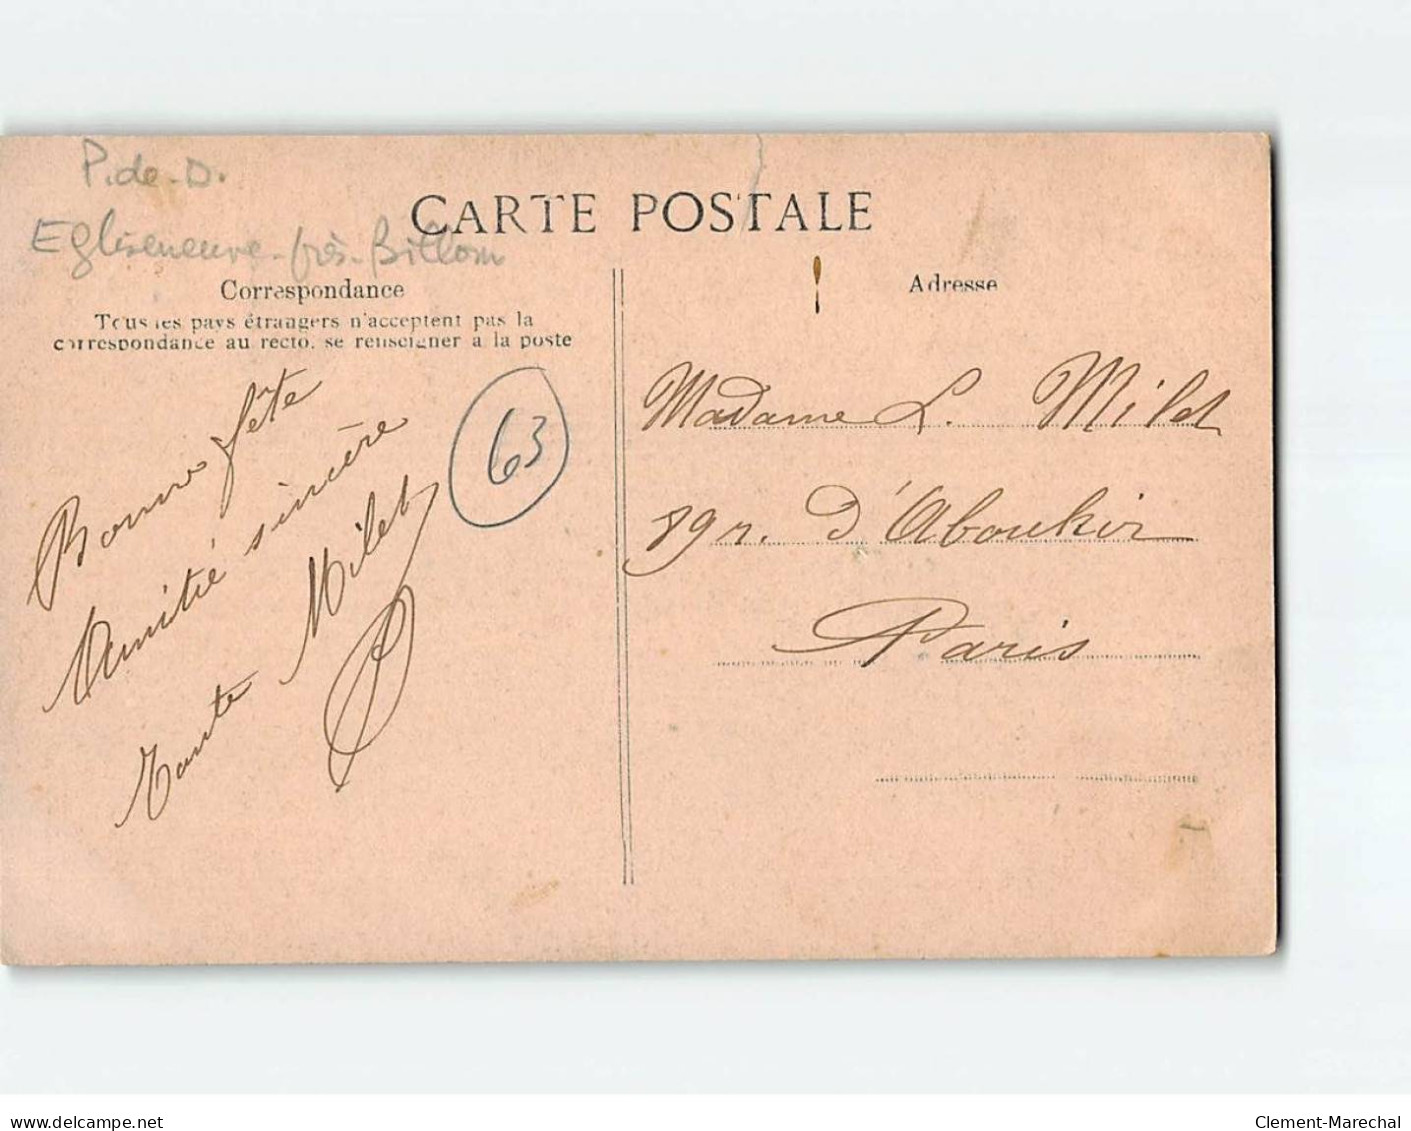 P. de. D.
Egliseneuve-près-Billom
CARTE POSTALE
Correspondance
Tous les pays étrangers n'acceptent pas la
correspondance au recto, se renseigner à la poste
Adresse
63
Bonne fête
Amitié sincère
Tante Milet
Madame L. Milet
89 r. d'Aboukir
Paris
www.delcampe.net
Clement-Marechal